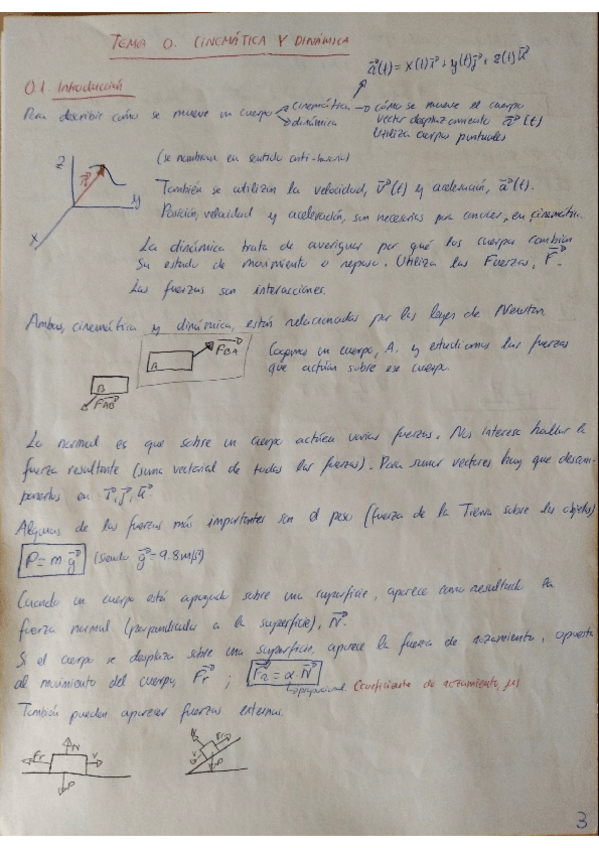 TEMA 0. CINEMÁTICA Y DINÁMICA
r⃗(t) = x(t)i⃗ + y(t)j⃗ + z(t)k⃗
0.1 Introducción
Para describir cómo se mueve un cuerpo
cinemática → cómo se mueve el cuerpo
vector desplazamiento r⃗(t)
Utiliza cuerpos puntuales
dinámica
(se nombran en sentido anti-horario)
Z
r⃗
y
X
También se utilizan la velocidad, v⃗(t) y aceleración, a⃗(t).
Posición, velocidad y aceleración, son necesarias para conocer, en cinemática.
La dinámica trata de averiguar por qué los cuerpos cambian
su estado de movimiento o reposo. Utiliza las Fuerzas, F⃗.
Las fuerzas son interacciones.
Ambas, cinemática y dinámica, están relacionadas por las leyes de Newton
A
F⃗BA
B
F⃗AB
Cogemos un cuerpo, A. y estudiamos las fuerzas
que actúan sobre ese cuerpo.
Lo normal es que sobre un cuerpo actúen varias fuerzas. Nos interesa hallar la
fuerza resultante (suma vectorial de todas las fuerzas). Para sumar vectores hay que descom-
ponerlos en i⃗, j⃗, k⃗.
Algunas de las fuerzas más importantes son el peso (fuerza de la Tierra sobre los objetos)
P⃗ = m g⃗ (siendo g⃗ = 9.8 m/s²)
Cuando un cuerpo está apoyado sobre una superficie, aparece como resultado la
fuerza normal (perpendicular a la superficie), N⃗.
Si el cuerpo se desplaza sobre una superficie, aparece la fuerza de rozamiento, opuesta
al movimiento del cuerpo, F⃗r ; F⃗r = α · N⃗
proporcional Coeficiente de rozamiento, μ
También pueden aparecer fuerzas externas.
Fr N v P
Fr v P
3